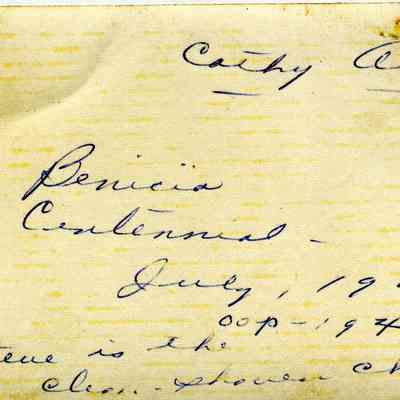 Cathy
Benicia
Centennial -
July, 19
oop - 194
is the
clean-shaven